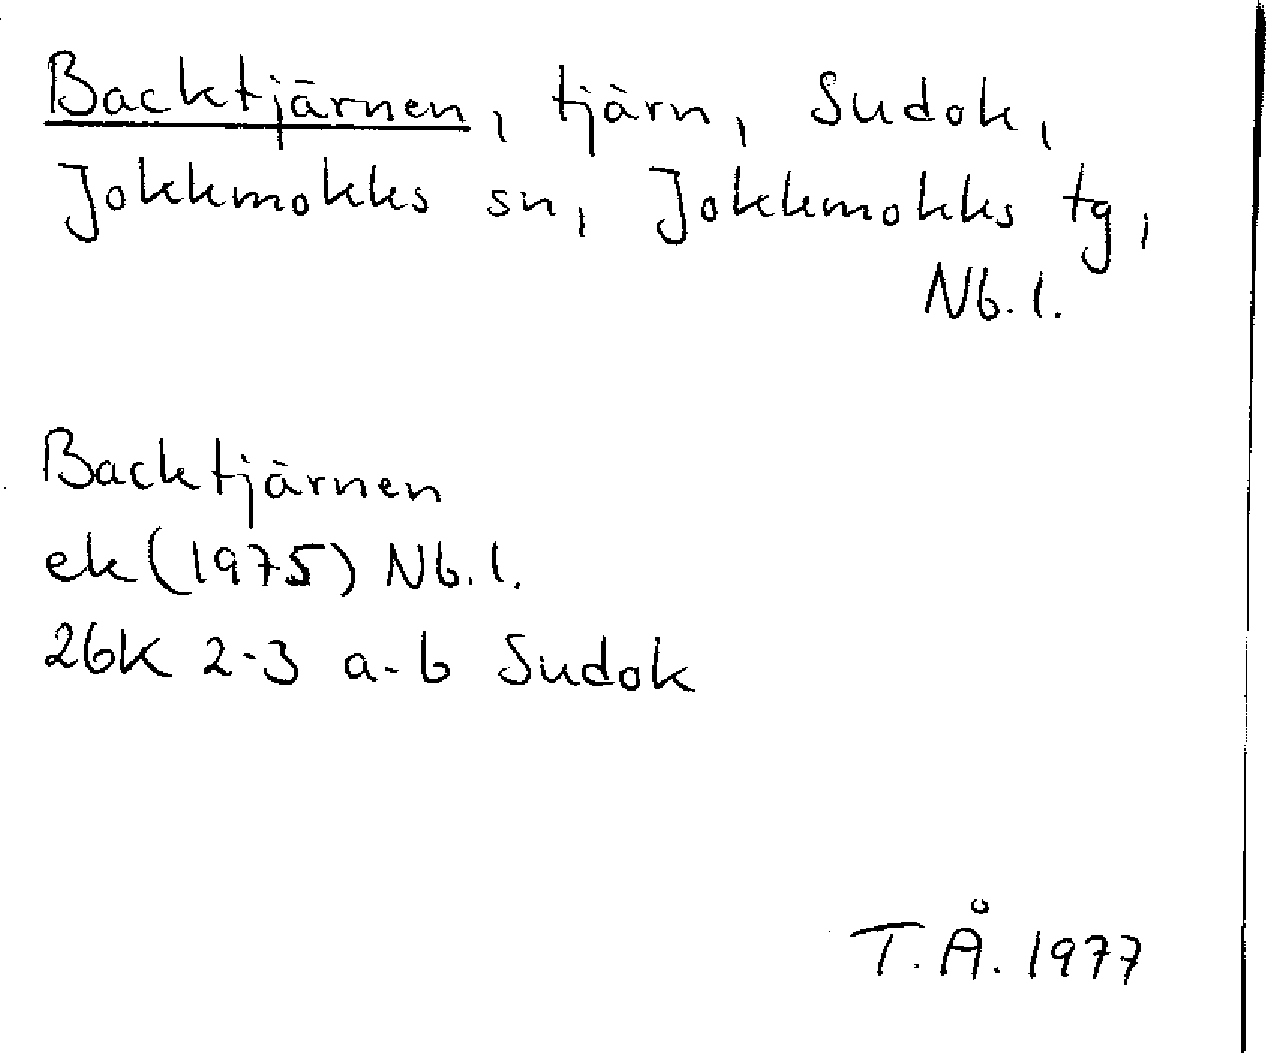 Backtjärnen, tjärn, Sudok,
Jokkmokks sn, Jokkmokks tg,
Nb. l.
Backtjärnen
ek (1975) Nb. l.
26K 2-3 a-b Sudok
T. Å. 1977